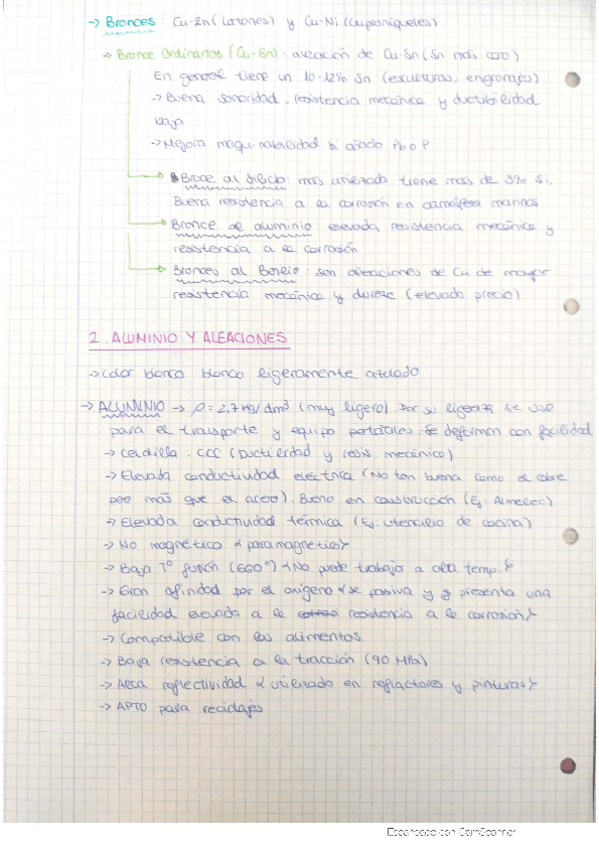 → Bronces : Cu-Zn (Latones) y Cu-Ni (Cuproníqueles)
→ Bronce Ordinarios (Cu-Sn) : aleación de Cu-Sn (Sn más caro)
En general tiene un 10-12% Sn (esculturas, engranajes)
→ Buena sonoridad, resistencia mecánica y ductibilidad
baja
→ Mejora maquinabilidad si añado Pb o P
→ Bronce al Silicio : más utilizado, tiene más de 3% Si,
Buena resistencia a la corrosión en atmósfera marinas
→ Bronce de aluminio : elevada resistencia mecánica y
resistencia a la corrosión
→ Bronces al Berilio : son aleaciones de Cu de mayor
resistencia mecánica y dureza (elevado precio)
2. ALUMINIO Y ALEACIONES
→ Color blanco blanco ligeramente azulado
→ ALUMINIO → ρ = 2,7 kg/dm³ (muy ligero) Por su ligereza se usa
para el transporte y equipo portátiles. Se deforman con facilidad
→ Celdilla : CCC (Ductilidad y resis. mecánica)
→ Elevada conductividad eléctrica (No tan buena como el cobre
pero más que el acero). Bueno en construcción (Ej. Almelec)
→ Elevada conductividad térmica (Ej. utencilio de cocina)
→ No magnético {paramagnético}
→ Baja Tº fusión (660º) {No puede trabajar a alta temp.}
→ Gran afinidad por el oxígeno {se pasiva y presenta una
facilidad elevada a la resistencia a la corrosión}
→ Compatible con los alimentos
→ Baja resistencia a la tracción (90 MPa)
→ Alta reflectividad {utilizado en reflactores y pinturas}
→ APTO para reciclajes
Escaneado con CamScanner